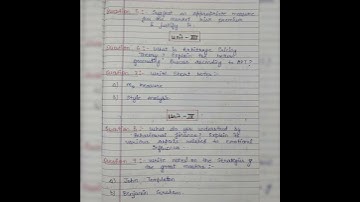 Question 5 :- Suggest an appropriate measure
for the market risk premium
& justify it.
Unit - III
Question 6 :- What is Arbitrage Pricing
Theory? Explain the return
generating Process According to APT?
Question 7 :- Write Short Notes :-
a) M² Measure
b) Style analysis
Unit - IV
Question 8 :- What do you understand by
Behavioural finance? Explain
various related to Emotional
Influence.
Question 9 :- Write notes on the Strategies of
the great masters :-
a) John Templeton
b) Benjamin Graham